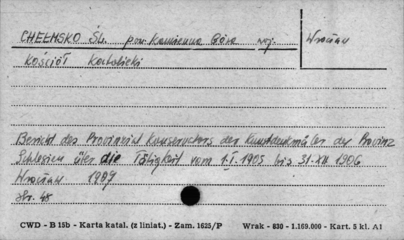 CHEŁMSKO Śl. pow. Kamienna Góra woj. Wrocław
Kościół Katolicki
Bericht des Provinzial Konservators der Kunstdenkmäler der Provinz
Schlesien über die Tätigkeit vom 1.I.1905 bis 31.XII 1906
Wrocław 1907
Str. 48
CWD - B 15b - Karta katal. (z liniat.) - Zam. 1625/P Wrak - 630 - 1.169.000 - Kart. 5 kl. A1